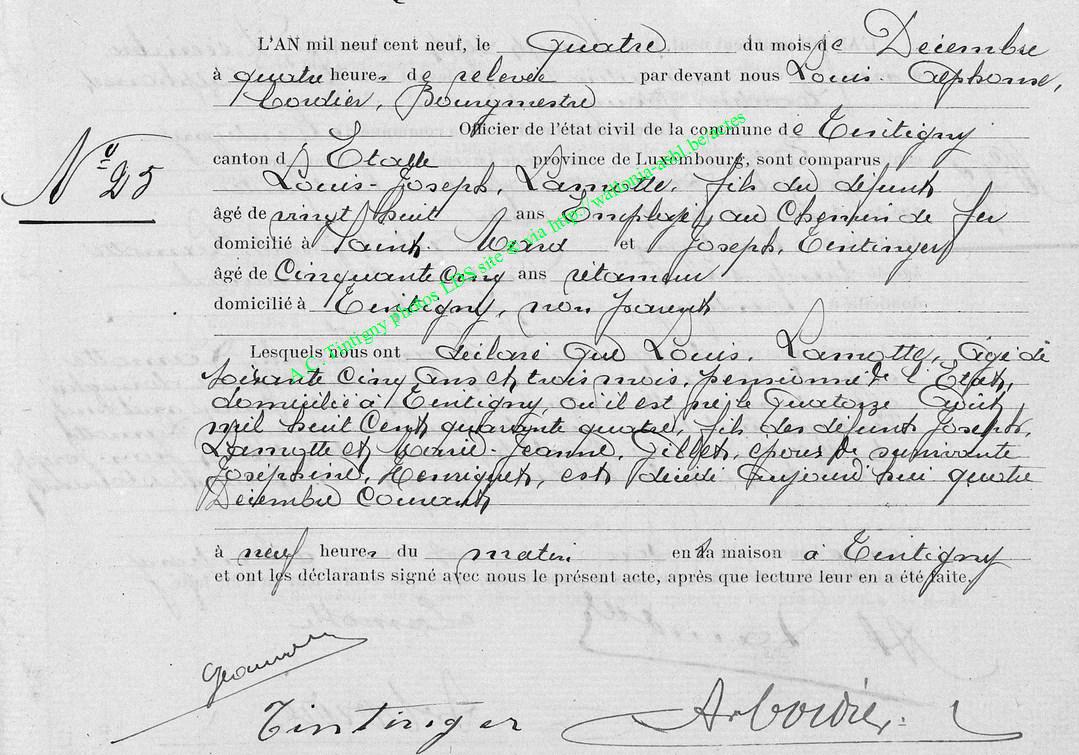 L'AN mil neuf cent neuf, le quatre du mois de Décembre
à quatre heures de relevée par devant nous Louis Alphonse,
Cordier, Bourgmestre
Officier de l'état civil de la commune de Tintigny
N° 25
canton d' Etalle province de Luxembourg, sont comparus
Louis-Joseph, Lamotte, fils du défunt
âgé de vingt huit ans Employé au Chemin de fer
domicilié à Saint-Mard et Joseph, Tintinger
âgé de Cinquante cinq ans rétameur
domicilié à Tintigny, non parent
Lesquels nous ont déclaré que Louis, Lamotte, âgé de
soixante cinq ans et trois mois, pensionné de l'Etat,
domicilié à Tintigny, où il est né le quatorze Août
mil huit cent quarante quatre, fils des défunts Joseph,
Lamotte et Marie-Jeanne, Gillet, époux de survivante
Joséphine, Henriquet, est décédé aujourd'hui quatre
Décembre Courant
à neuf heures du matin en sa maison à Tintigny
et ont les déclarants signé avec nous le présent acte, après que lecture leur en a été faite,
Tintinger
ACordier
A.C. Tintigny photos LDS site & via http://wallonia-asbl.be/actes